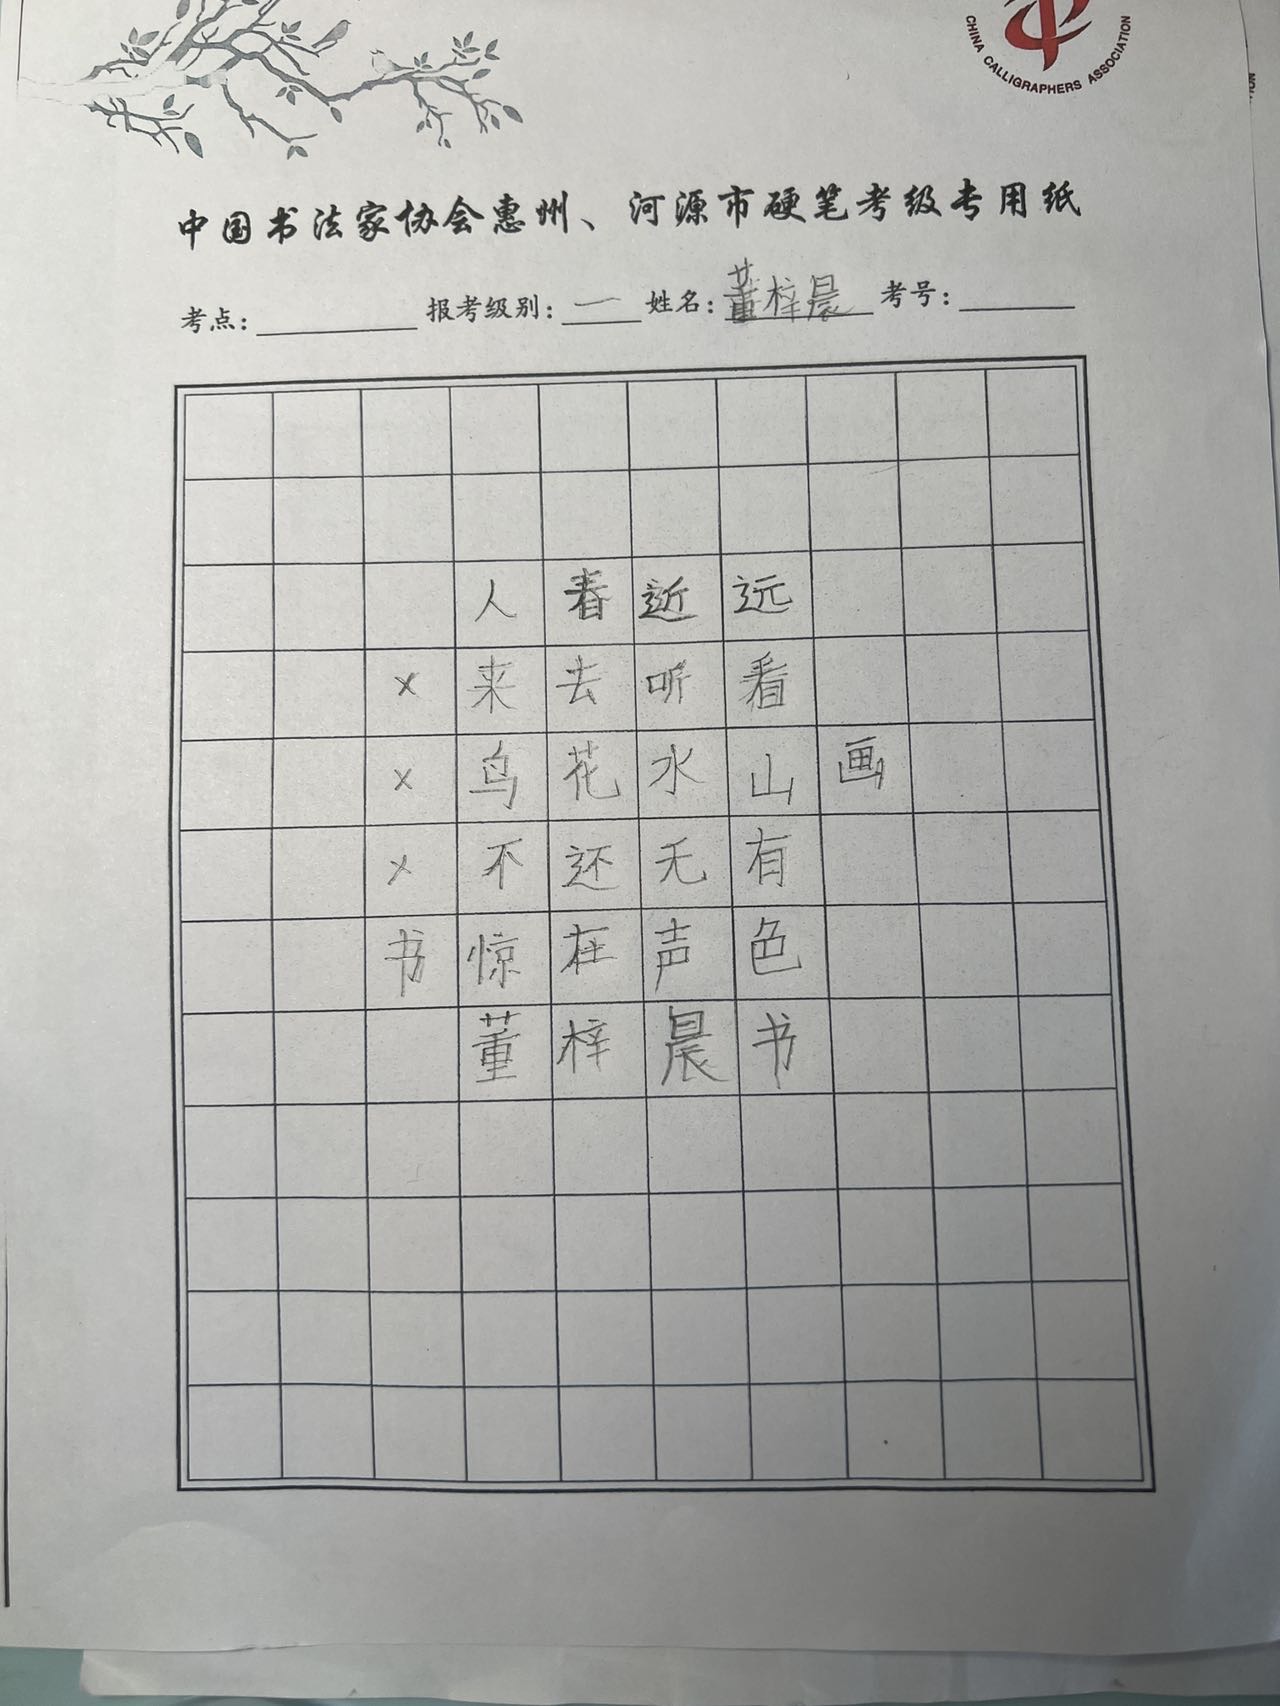 CHINA CALLIGRAPHERS ASSOCIATION
中国书法家协会惠州、河源市硬笔考级专用纸
考点: 报考级别: 一 姓名: 董梓晨 考号:
画
远看山有色
近听水无声
春去花还在
人来鸟不惊
×××书
董梓晨书